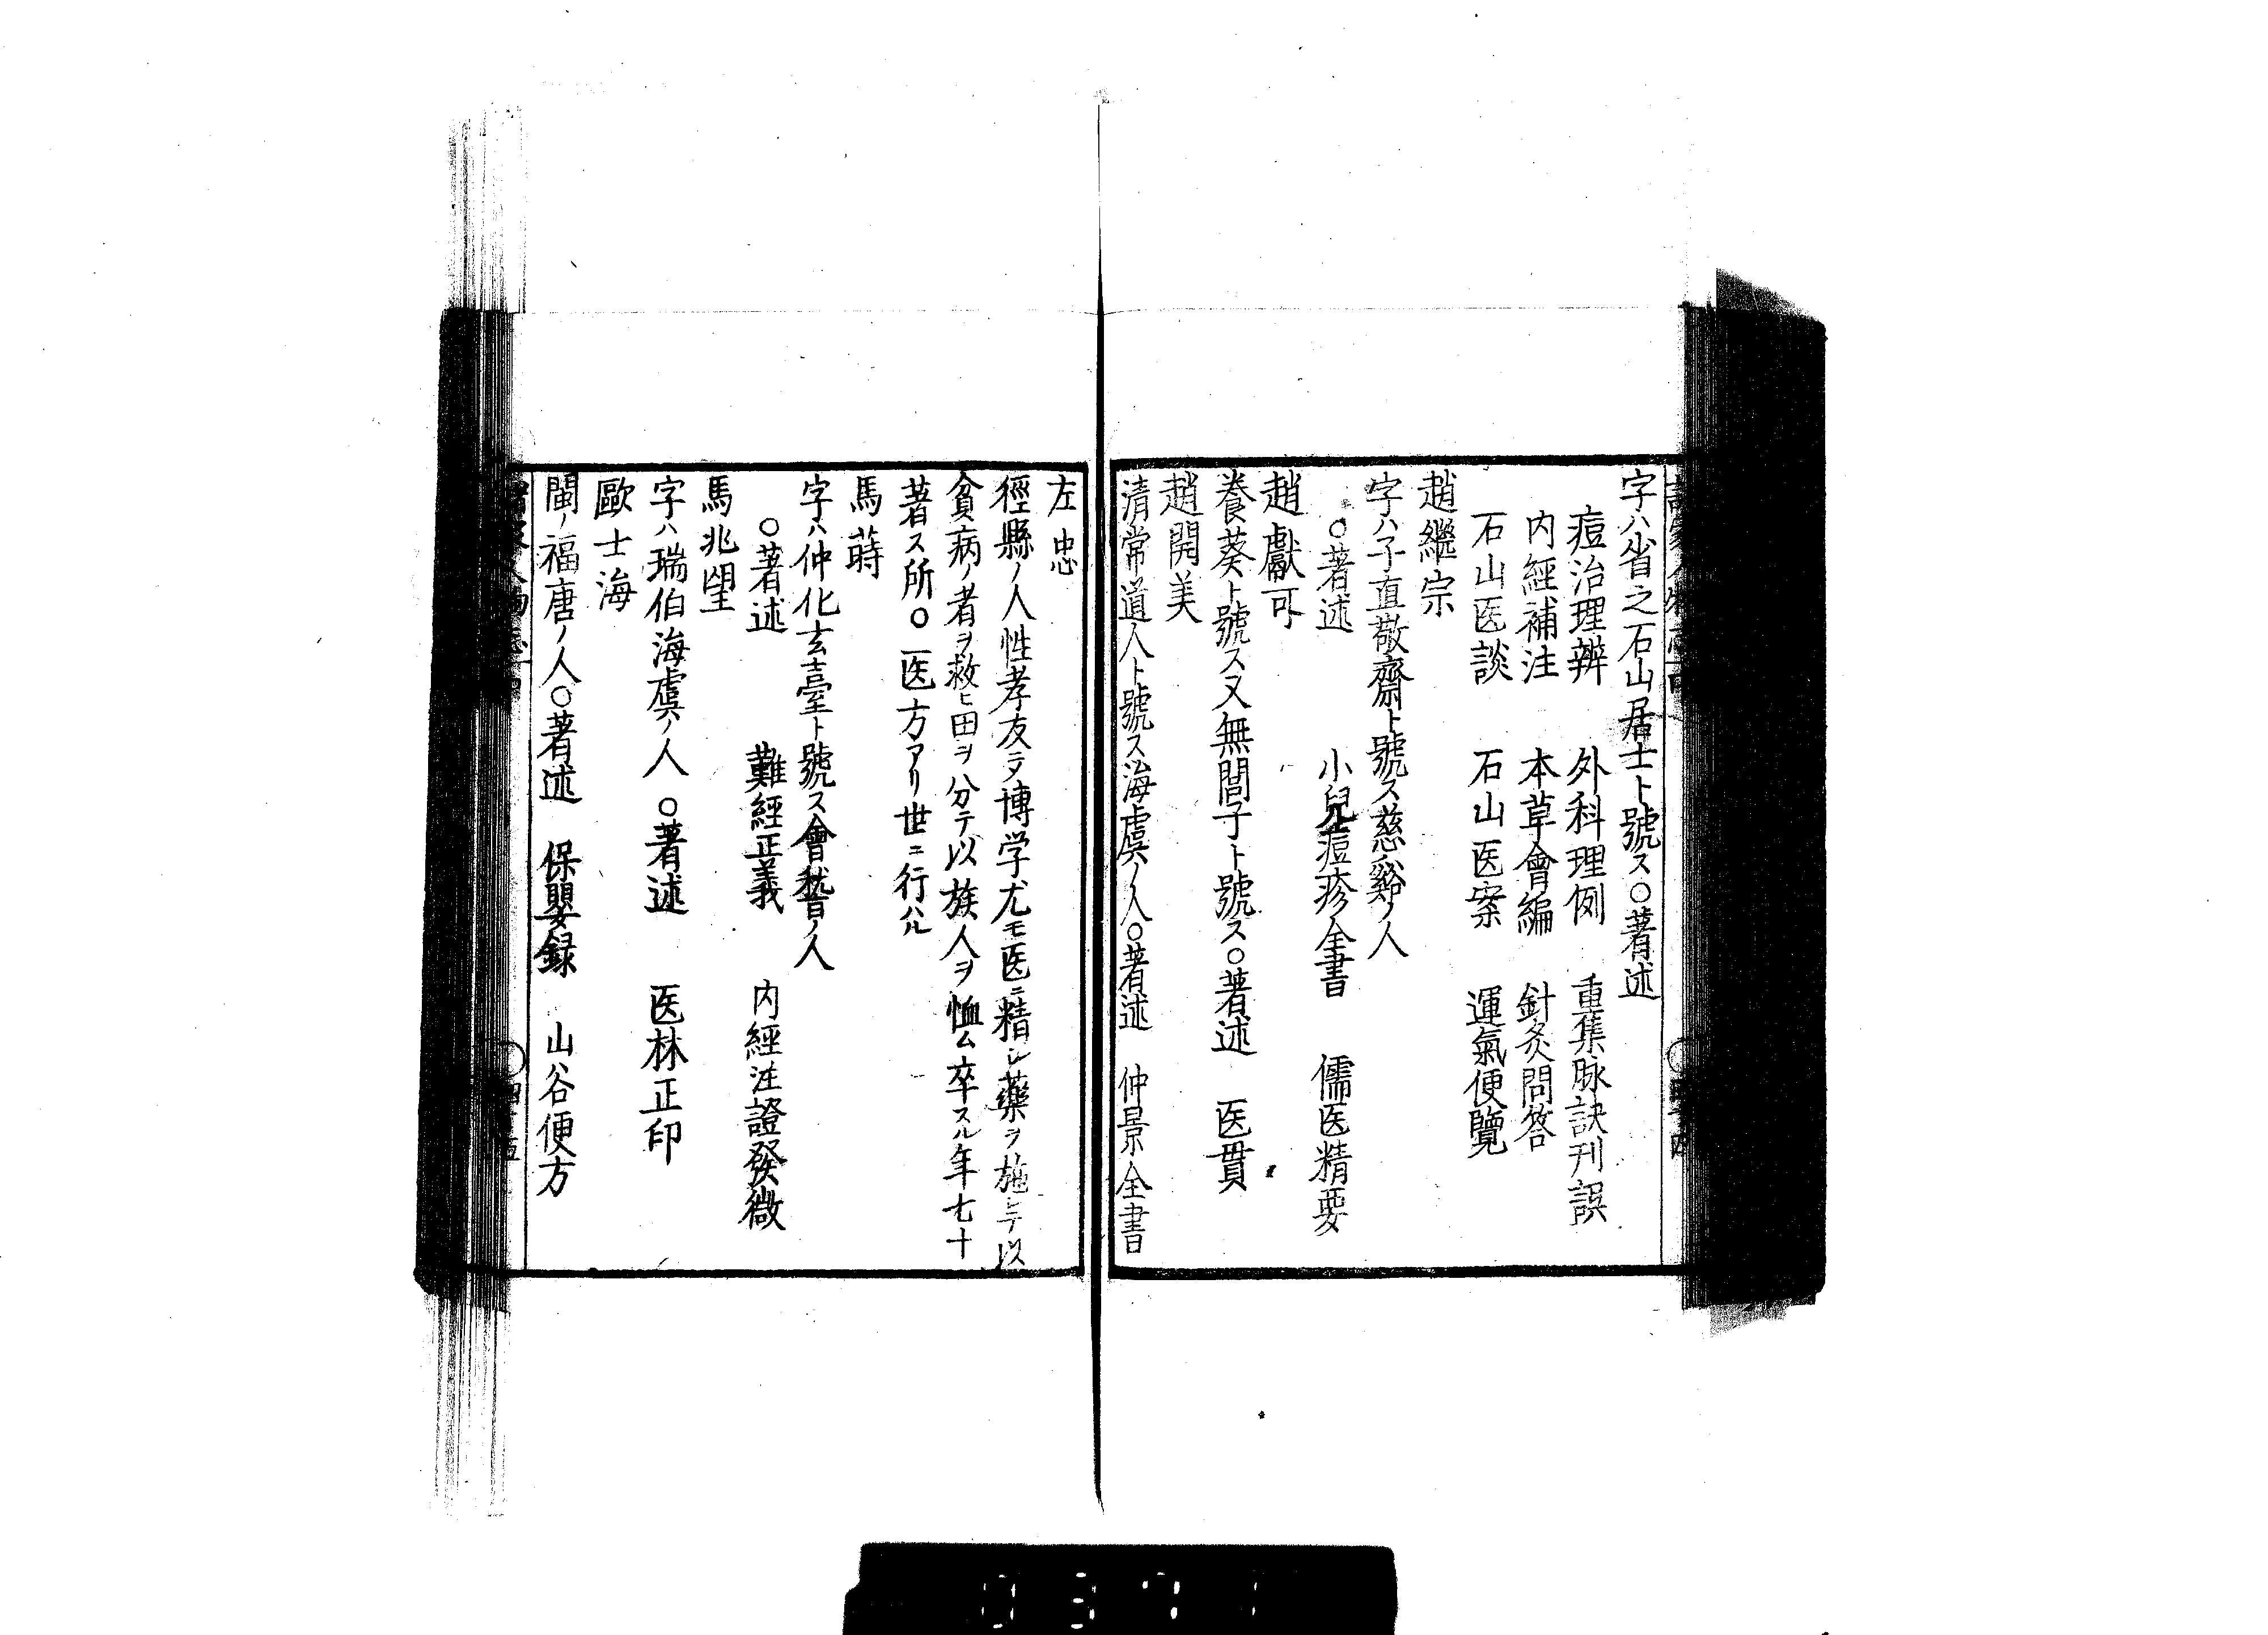 字ハ省之石山居士ト號ス〇著述
痘治理辨　外科理例　重集脉訣刊誤
内經補注　本草會編　針灸問答
石山医談　石山医案　運氣便覽
趙繼宗
字ハ子直敬齋ト號ス慈谿ノ人
〇著述　小兒痘疹全書　儒医精要
趙獻可
養葵ト號ス又無閭子ト號ス〇著述　医貫
趙開美
清常道人ト號ス海虞ノ人〇著述　仲景全書
左忠
徑縣ノ人性孝友ニテ博学尤モ医ニ精シ藥ヲ施シテ以
貧病ノ者ヲ救ヒ田ヲ分テ以族人ヲ恤ム卒スル年七十
著ス所〇医方アリ世ニ行ハル
馬蒔
字ハ仲化玄臺ト號ス會稽ノ人
〇著述　難經正義　内經注證發微
馬兆聖
字ハ瑞伯海虞ノ人〇著述　医林正印
歐士海
閩ノ福唐ノ人〇著述　保嬰録　山谷便方